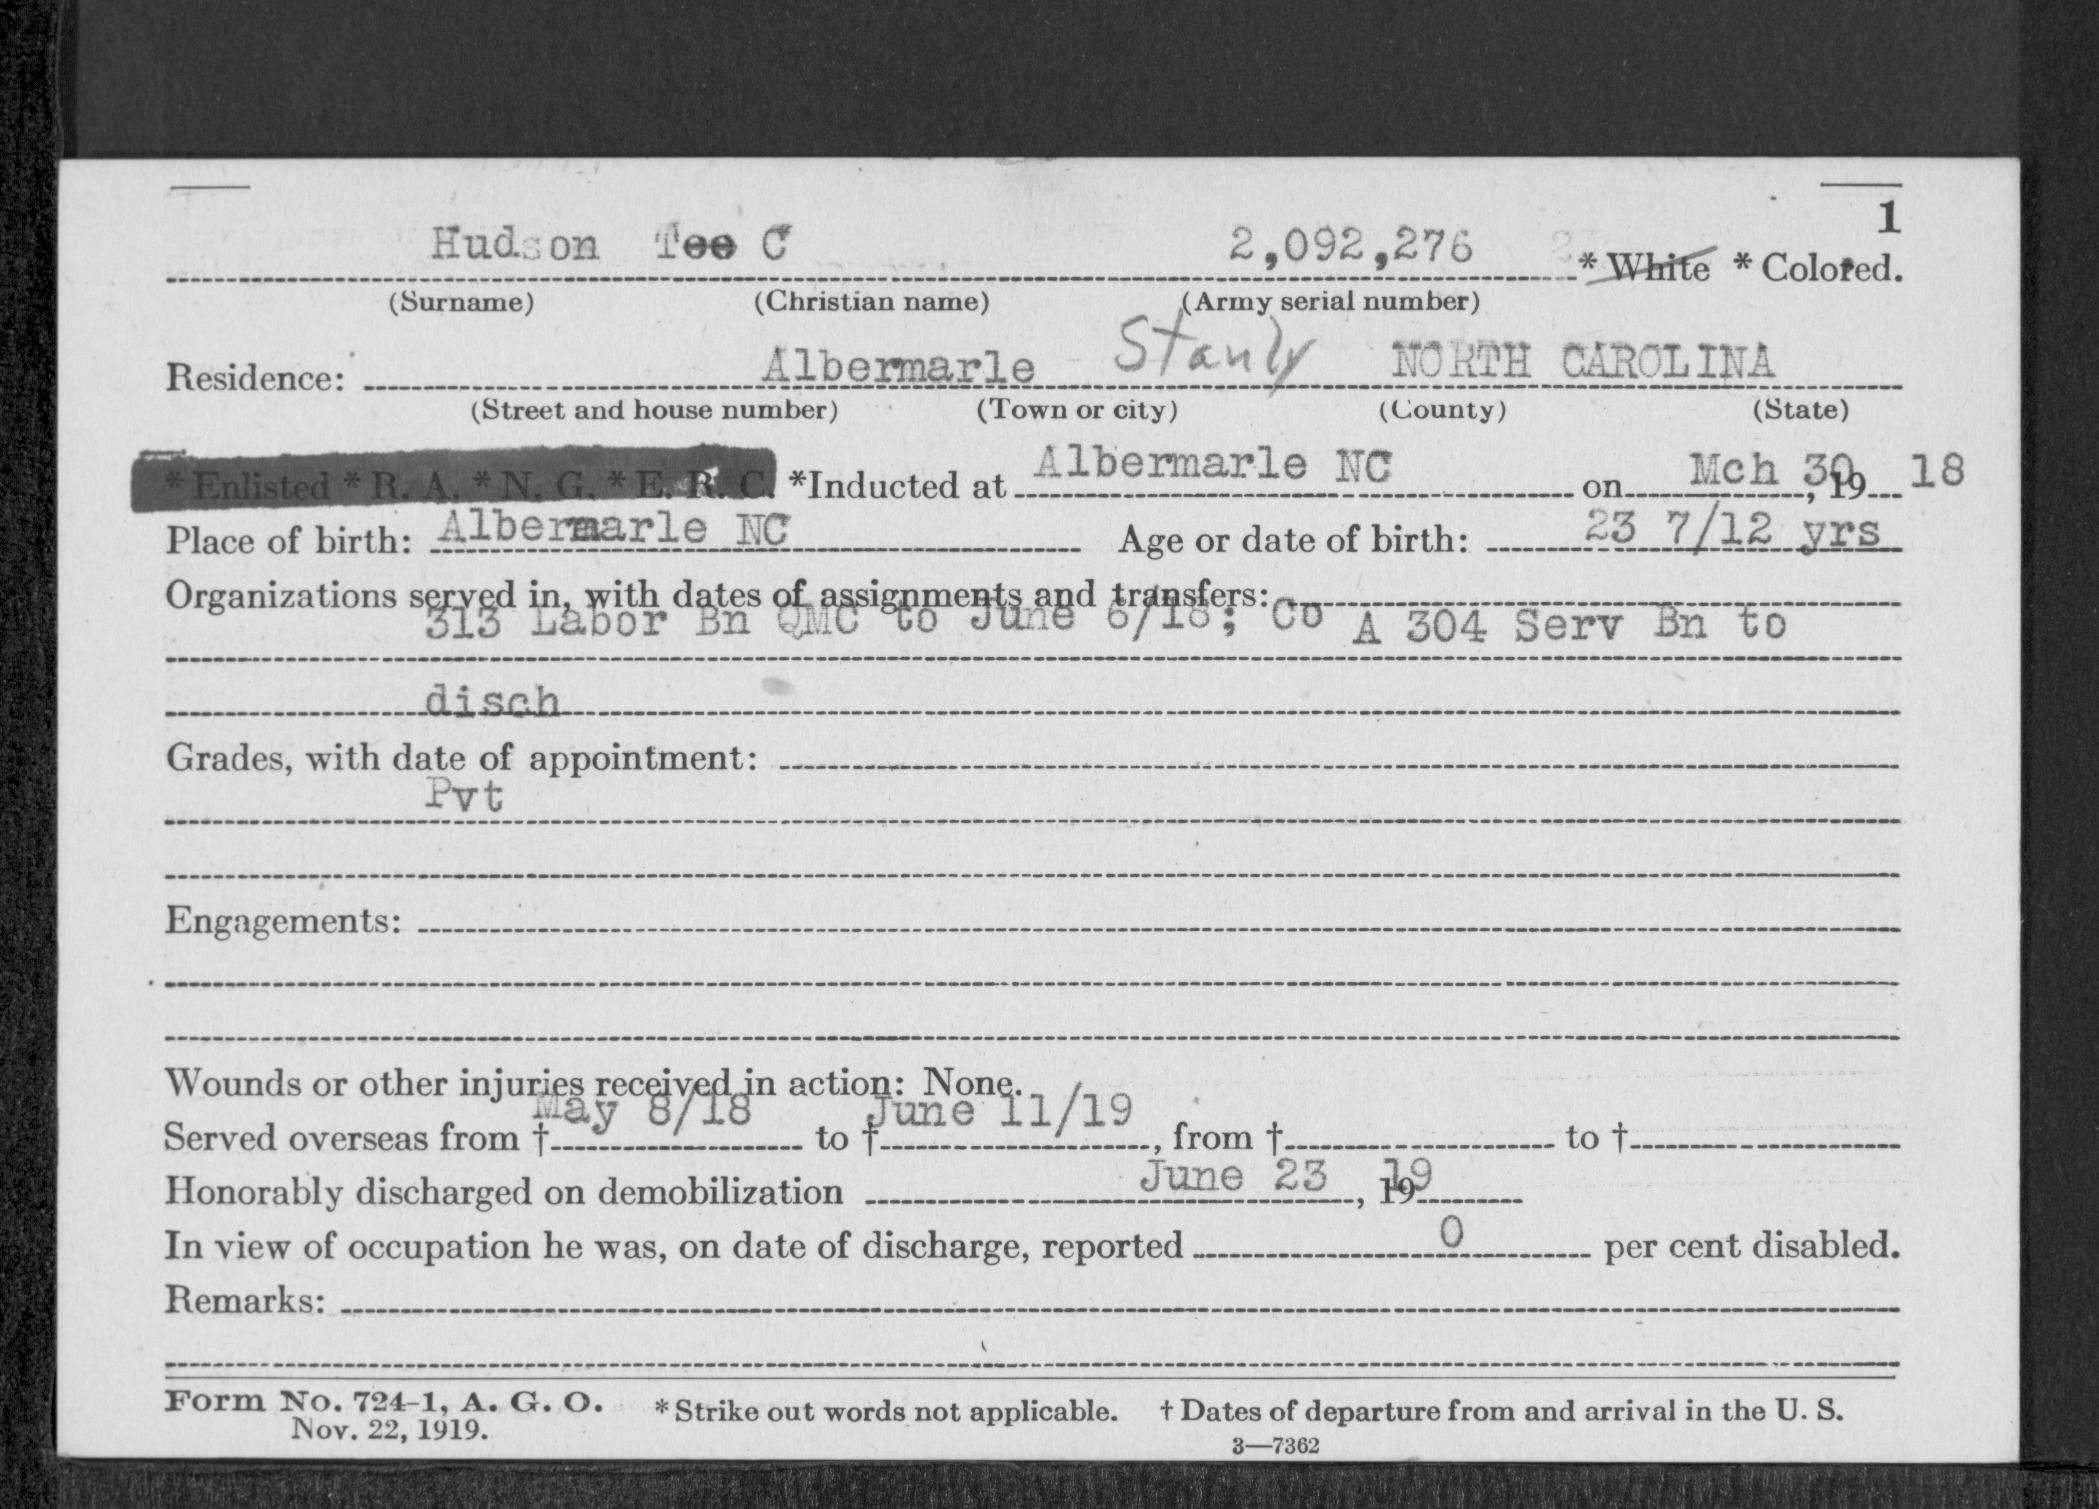 1
Hudson Tee C 2,092,276 * White * Colored.
(Surname) (Christian name) (Army serial number)
Residence: Albermarle Stanly NORTH CAROLINA
(Street and house number) (Town or city) (County) (State)
* Enlisted * R. A. * N. G. * E. R. C. *Inducted at Albermarle NC on Mch 30, 19 18
Place of birth: Albermarle NC Age or date of birth: 23 7/12 yrs
Organizations served in, with dates of assignments and transfers:
313 Labor Bn QMC to June 6/18; Co A 304 Serv Bn to
disch
Grades, with date of appointment:
Pvt
Engagements:
Wounds or other injuries received in action: None.
Served overseas from † May 8/18 to † June 11/19, from † to †
Honorably discharged on demobilization June 23, 19 19
In view of occupation he was, on date of discharge, reported 0 per cent disabled.
Remarks:
Form No. 724-1, A. G. O. * Strike out words not applicable. † Dates of departure from and arrival in the U. S.
Nov. 22, 1919.
3—7362